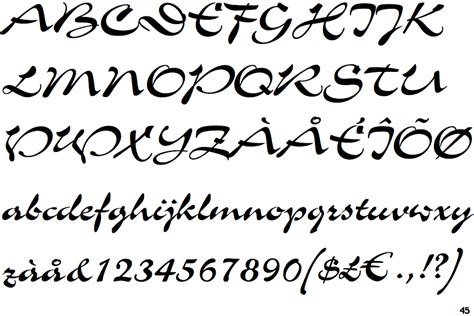 ABCDEFGHIJK
LMNOPQRSTU
VWXYZÀÅÉÎÕØ
abcdefghijklmnopqrstuvwxyz
zàå&1234567890($£€.,!?)
45